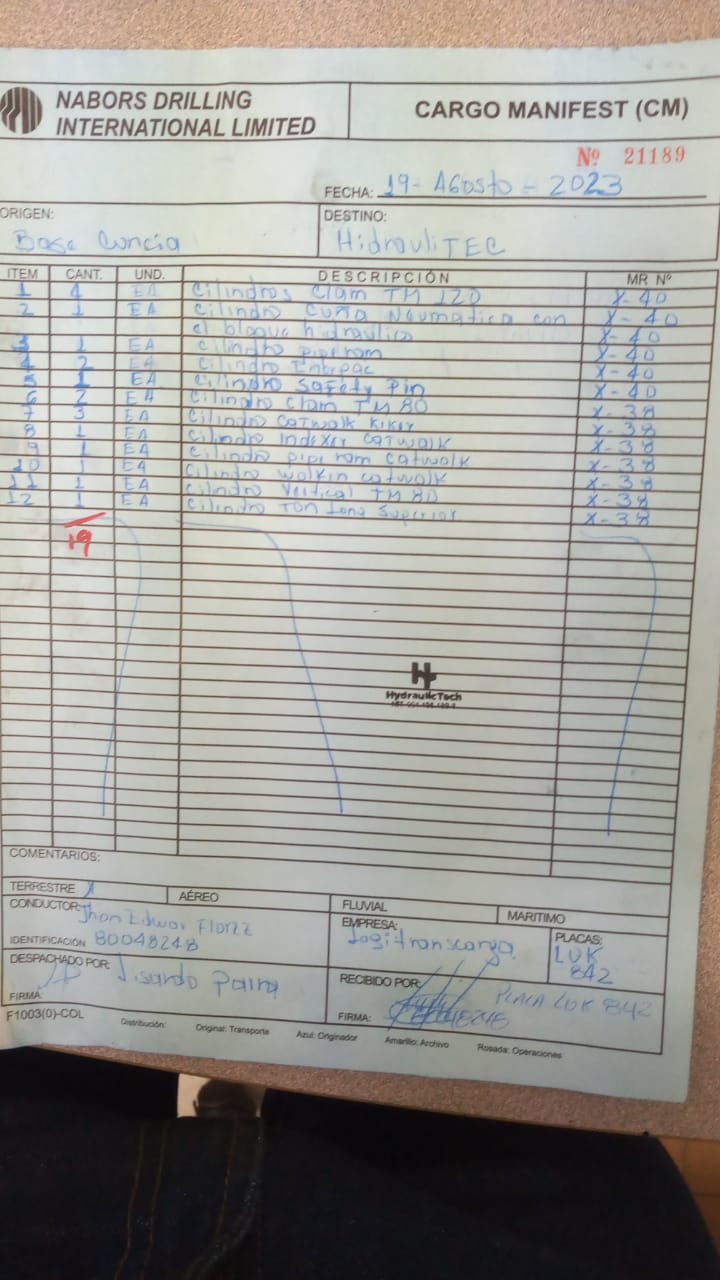 NABORS DRILLING
INTERNATIONAL LIMITED
CARGO MANIFEST (CM)
Nº 21189
FECHA: 19- Agosto - 2023
ORIGEN:
Base Cuncia
DESTINO:
HidrauliTEC
ITEM CANT. UND. DESCRIPCIÓN MR Nº
1 4 EA Cilindros Clam TM 120 X-40
2 1 EA Cilindro Cuña Neumatica con X-40
el bloque hidraulico X-40
3 1 EA Cilindro pipe ram X-40
4 2 EA Cilindro Enerpac X-40
5 1 EA Cilindro Safety Pin X-40
6 2 EA Cilindro Clam TM 80 X-38
7 3 EA Cilindro Catwalk Kiker X-38
8 1 EA Cilindro Indexer catwalk X-38
9 1 EA Cilindro pipe ram catwalk X-38
10 1 EA Cilindro walkin catwalk X-38
11 1 EA Cilindro Vertical TM 80 X-38
12 1 EA Cilindro Ton Superior X-38
19
HydraulicTech
COMENTARIOS:
TERRESTRE X AÉREO FLUVIAL MARITIMO
CONDUCTOR: Jhon Edwar
IDENTIFICACIÓN 80048248
EMPRESA:
Logitranscarga
PLACAS:
LUK
842
DESPACHADO POR: Lisardo Parra
FIRMA:
RECIBIDO POR: PLACA LUK 842
FIRMA:
F1003(0)-COL Distribución: Original: Transporte Azul: Originador Amarillo: Archivo Rosada: Operaciones